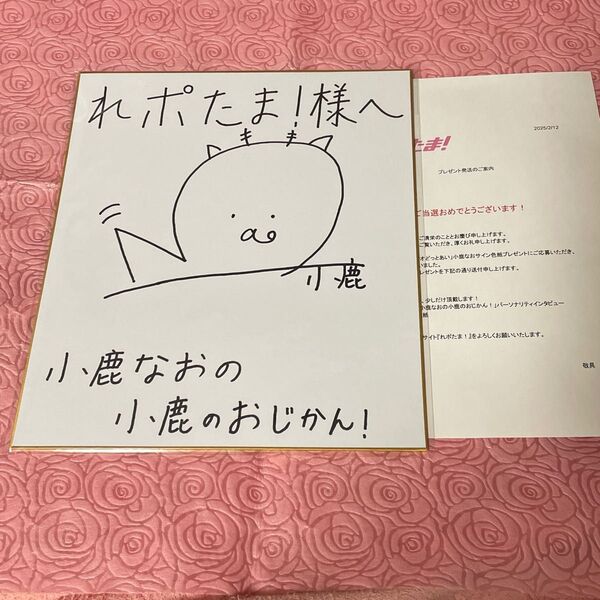 れポたま!様へ
小鹿
小鹿なおの
小鹿のおじかん!
たま!
2025/2/12
プレゼント発送のご案内
ご当選おめでとうございます!
ご清栄のこととお慶び申し上げます。
ご覧いただき、厚くお礼申し上げます。
オどっとあい」小鹿なおサイン色紙プレゼントにご応募いただき、
いました。
レゼントを下記の通り送付申し上げます。
少しだけ頂戴します!
小鹿なおの小鹿のおじかん!」パーソナリティインタビュー
紙
サイト『れポたま!』をよろしくお願いいたします。
敬具